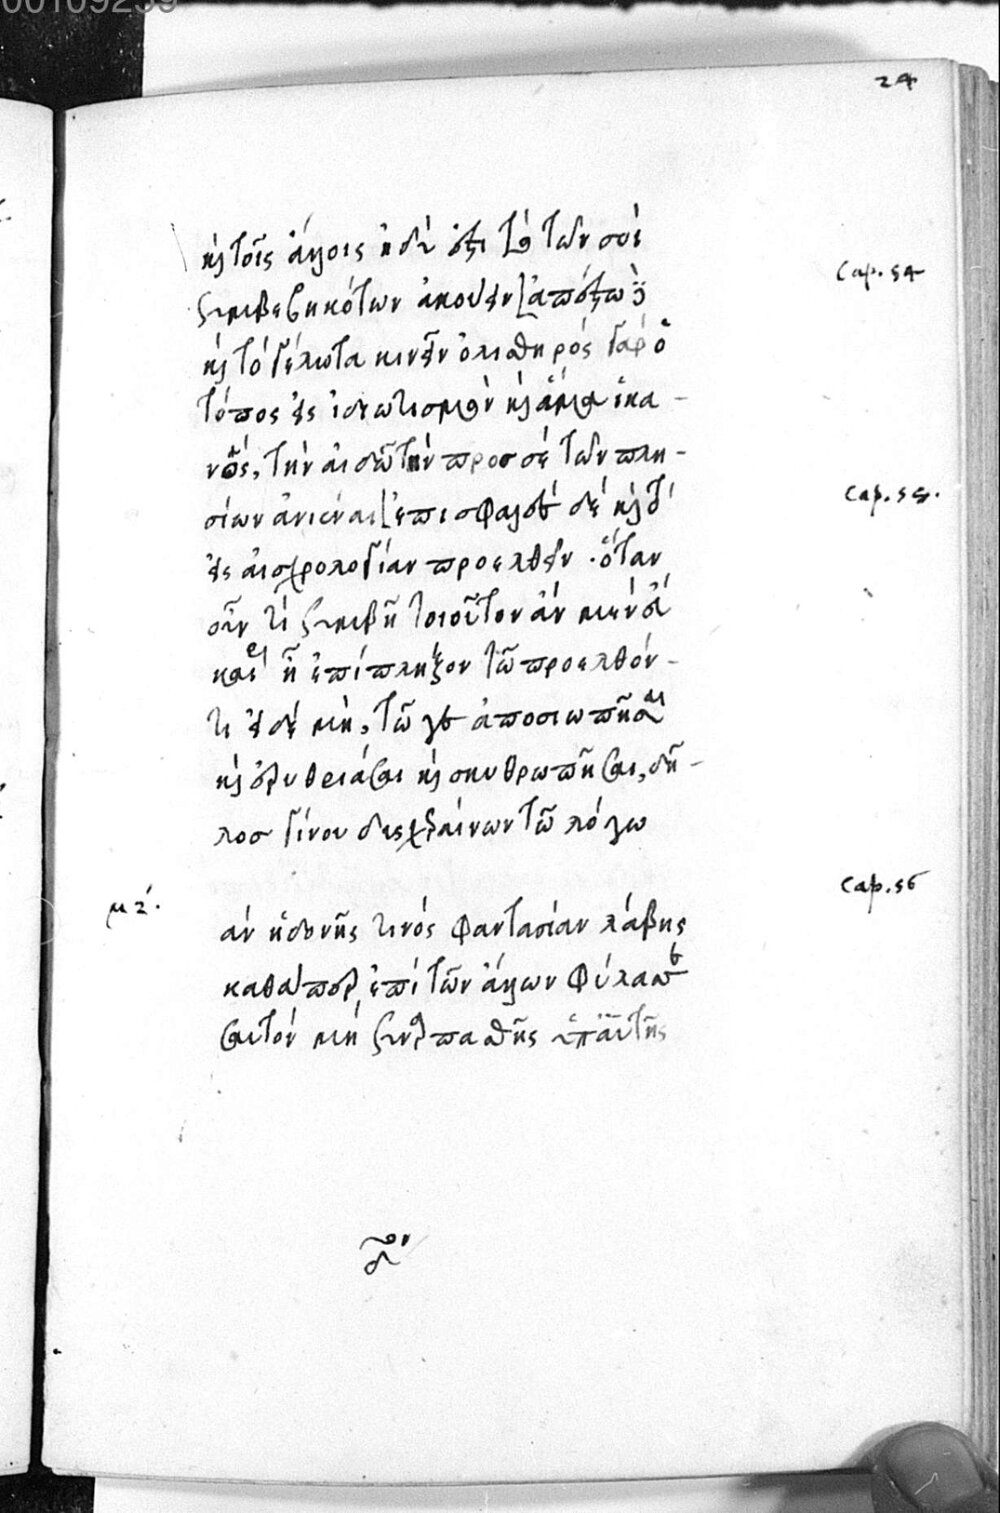 00109239
24
καὶ τοῖς ἄλλοις ἡδύ ἐστι τὸ τῶν σοὶ
cap. 54
συμβεβηκότων ἀκούειν [ἀπέστω δὲ
καὶ τὸ γέλωτα κινεῖν ὀλισθηρὸς γὰρ ὁ
τόπος εἰς ἰδιωτισμὸν καὶ ἅμα ἱκα-
νὸς, τὴν αἰδῶ τὴν προσ σὲ τῶν πλη-
σίων ἀνιέναι [ἐπισφαλὲς δὲ καὶ τὸ
cap. 55.
εἰς αἰσχρολογίαν προελθεῖν. ὅταν
οὖν τι συμβῇ τοιοῦτον ἂν μὲν
καὶ ἐπίπληξον τῷ προελθόν-
τι εἰ δὲ μὴ, τῷ γε ἀποσιωπῆσαι
καὶ ἐρυθριάσαι καὶ σκυθρωπῆσαι, δῆ-
λος γίνου δυσχεραίνων τῷ λόγω
cap. 56
μζ.
ἂν ἡδονῆς τινός φαντασίαν λάβης
καθάπερ ἐπὶ τῶν ἄλλων φύλασσε
σαυτὸν μὴ συναρπασθῆς ὑπ' αὐτῆς